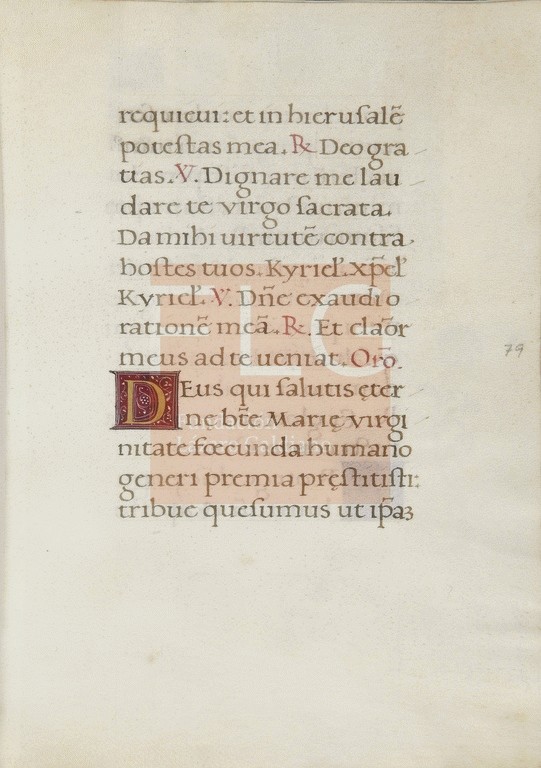 requieui: et in hierusalẽ
potestas mea. ℞. Deo gra
tias. V. Dignare me lau
dare te virgo sacrata.
Da mihi uirtutẽ contra
hostes tuos. Kyriel̃. xp̃el̃
Kyriel̃. V. Dñe exaudi o
rationẽ meã. ℞. Et clãor
meus ad te ueniat. Orõ.
DEus qui salutis ęter
nę bt̃e Marię virgi
nitate fœcunda humano
generi premia pręstitisti:
tribue quesumus ut ip̃aꝫ
79
FLC